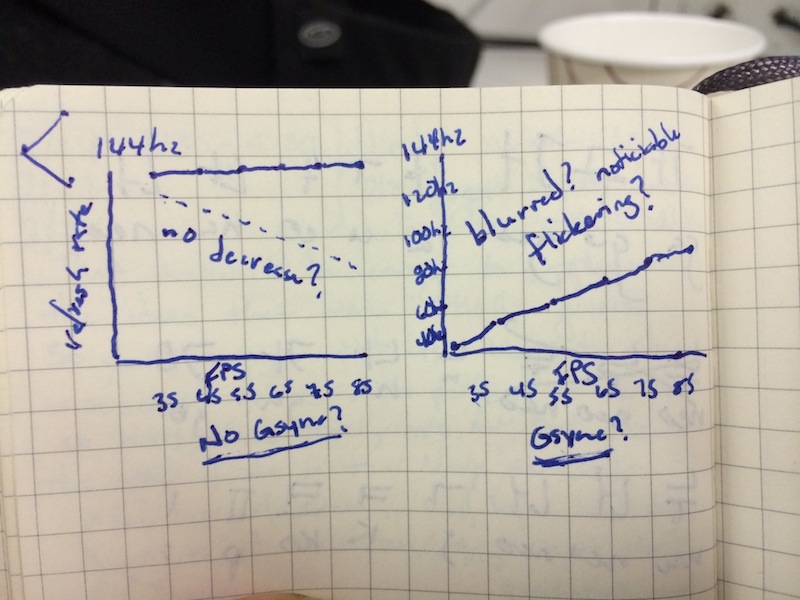 144hz
refresh rate
no decrease?
FPS
35 45 55 65 75 85
No Gsync?
144hz
120hz
100hz
80hz
60hz
40hz
blurred? noticikable
flickering?
FPS
35 45 55 65 75 85
Gsync?